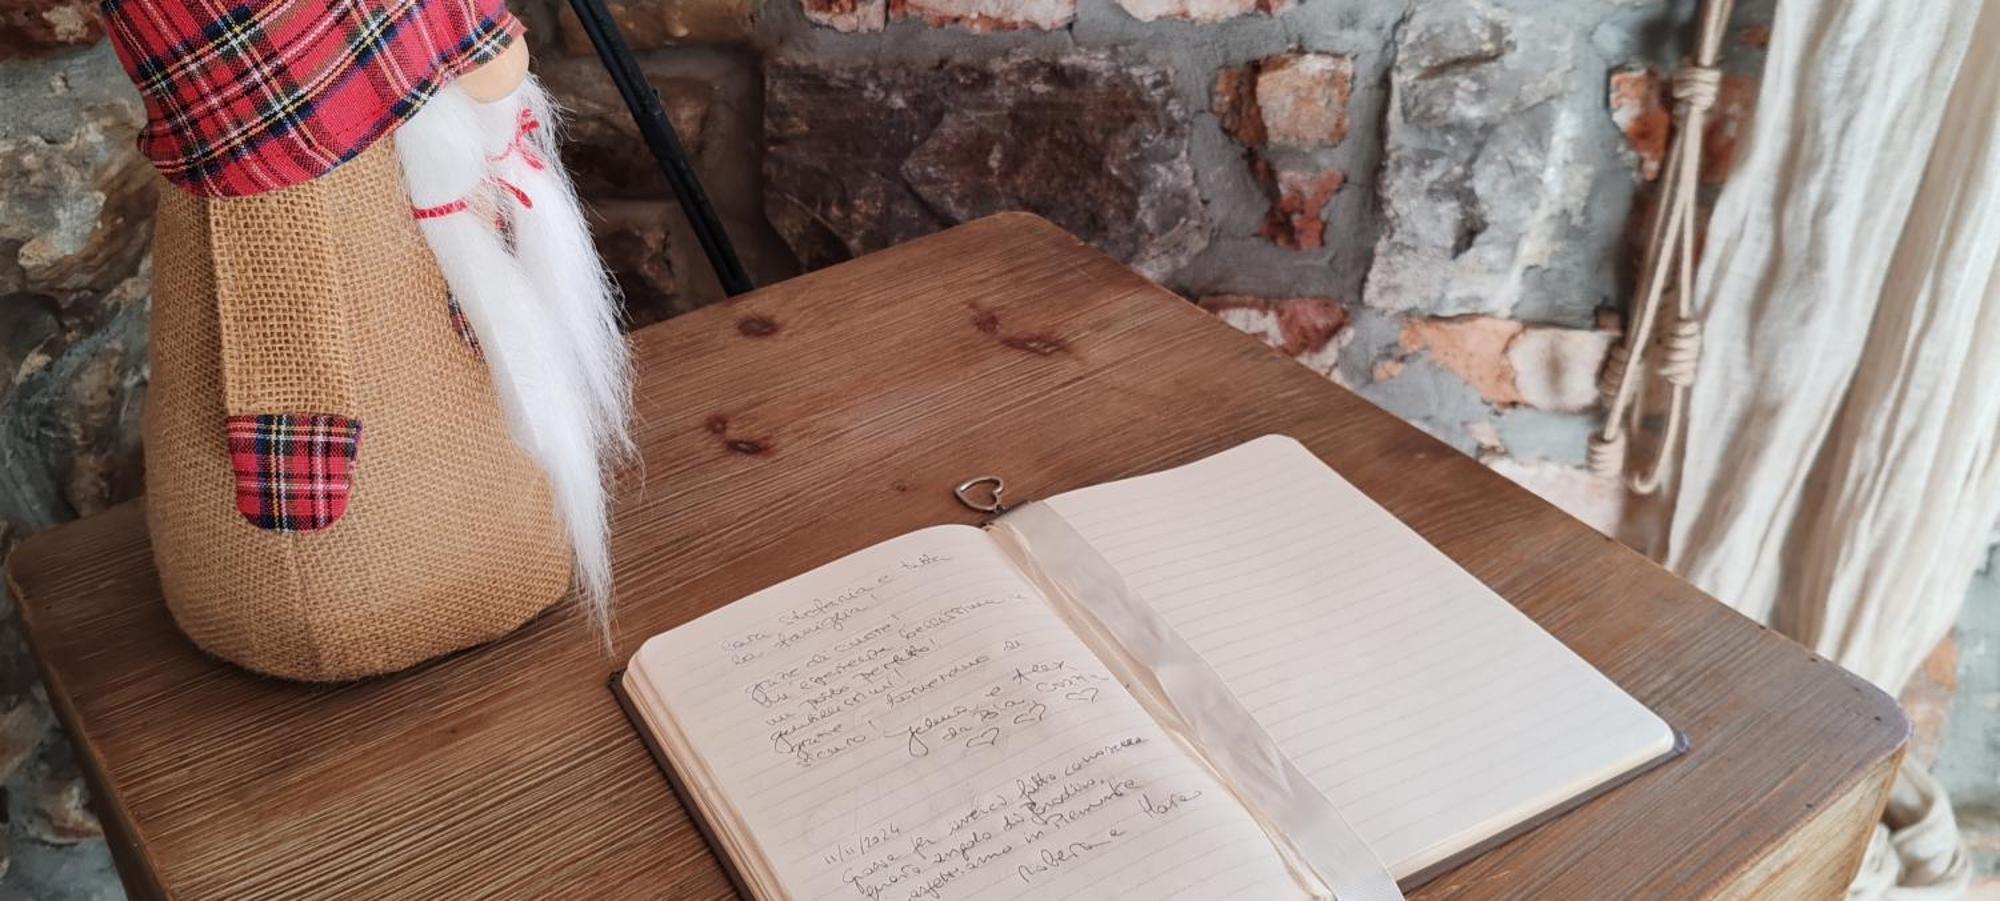 Cara Stefania e tutta
la famiglia!
grazie di cuore!
Un'esperienza bellissima e
un posto perfetto!
gentilissimi!
grazie! torneremo di
sicuro! e Alex
da
11/11/2024
Grazie per averci fatto conoscere
questo angolo di Paradiso,
aspettiamo in Piemonte
Roberta e